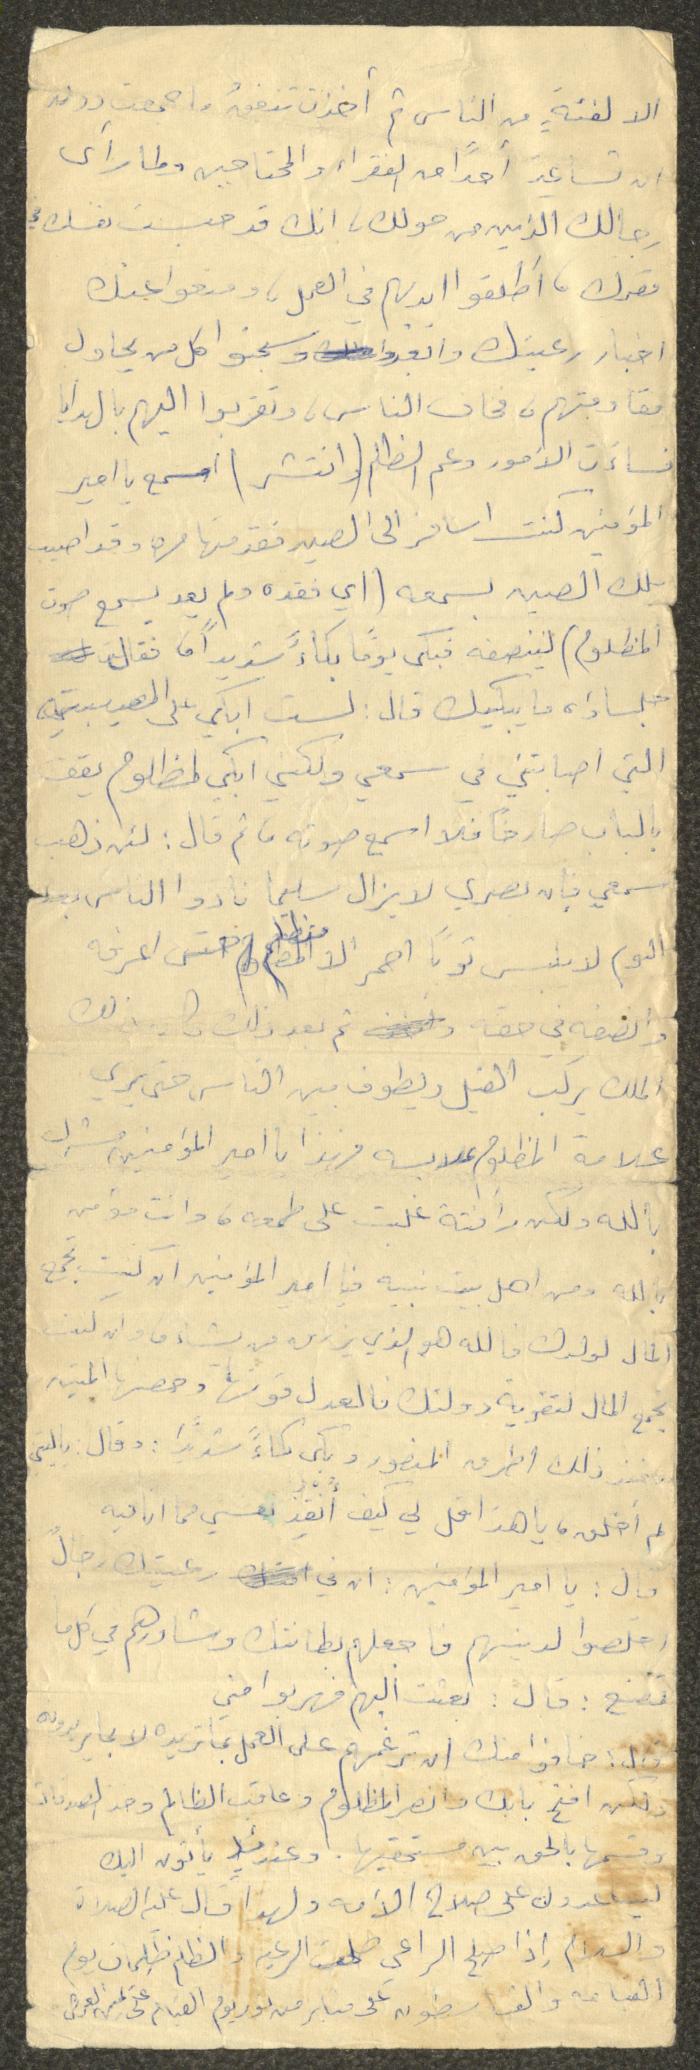 الا لفئةٍ من الناس ثم أخذت تنفقهُ واجمعت دون
ان تساعد أحداً من الفقراء والمحتاجين ولما رأى
رجالك الذين من حولك، انك قد حبست نفسك في
مقرك، أطلقوا ايديهم في العمل، ومنعوا عنك
اخبار رعيتك وسجنوا كل من يحاول
مقاومتهم، فخاف الناس، وتقربوا اليهم بالهدايا
فساءت الأمور وعم الظلم (وانتشر) اسمع يا امير
المؤمنين كنت اسافر الى الصين فقدمتها مره وقد اصيب
ملك الصين بسمعه (اي فقده ولم يعد يسمع صوت
المظلوم) لينصفه فبكى يومًا بكاءً شديداً، فقال له
جلساؤه ما يبكيك قال: لست ابكي على المصيبة
التي اصابتني في سمعي ولكني ابكي لمظلوم يقف
بالباب صارخاً فلا اسمع صوته، ثم قال: لئن ذهب
سمعي فإن بصري لا يزال سليما نادوا الناس بعد
اليوم لا يلبس ثوبًا احمر الا مظلوم حتى اعرفه
وانصفه في حقه ثم بعد ذلك كان ذلك
الملك يركب الفيل ويطوف بين الناس حتى يرى
علامة المظلوم بملابسه فهذا يا امير المؤمنين مشرك
بالله ولكن رأفته غلبت على طمعه، وانت مؤمن
بالله ومن اهل بيت نبيه فيا امير المؤمنين ان كنت تجمع
المال لولدك فالله هو الذي يرزق من يشاء، وان كنت
تجمع المال لتقوية دولتك فالعدل قوتها وحصنها المتين
عند ذلك اطرق المنصور وبكى بكاءً شديدًا: وقال: ياليتني
لم أخلق، يا هذا قل لي كيف أنقِذ نفسي مما انا فيه
قال: يا امير المؤمنين: ان في رعيتك رجالٌ
اخلصوا لدينهم فاجعلهم بطانتك وشاورهم في كل ما
تصنع: قال: بعثت اليهم فهربوا مني
قال: خافوا منك ان ترغمهم على العمل بما تريده لا بما يريدونه
ولكن افتح بابك وانصر المظلوم وعاقب الظالم وخذ الصدقات
وقسمها بالحق بين مستحقيها. وعندئذٍ يأتون اليك
ليساعدوك على صلاح الأمه ولهذا قال عليه الصلاة
والسلام إذا صلح الراعي صلحت الرعيه والظلم ظلمات يوم
القيامه والمقسطون على منابر من نور يوم القيامه على يمين العرش